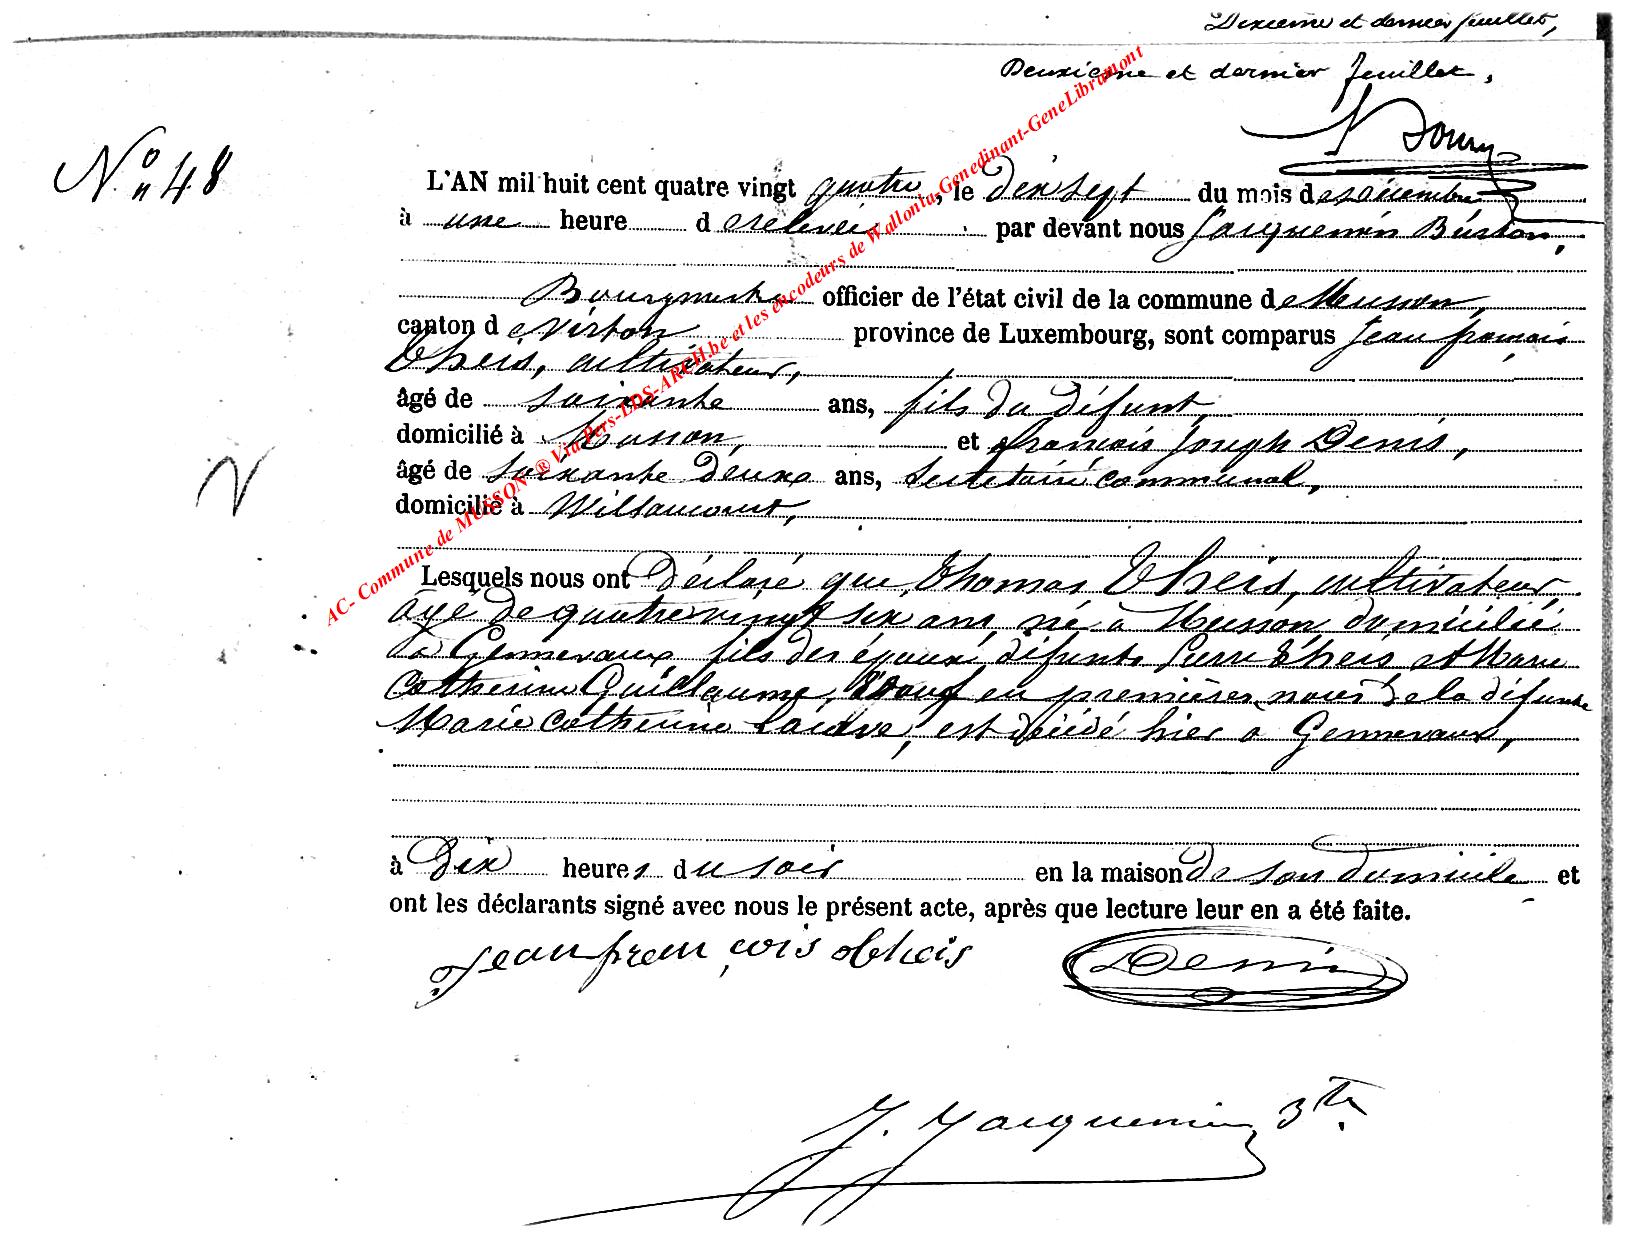 Deuxième et dernier feuillet,
Deuxième et dernier feuillet,
N° 48
L'AN mil huit cent quatre vingt quatre, le dix sept du mois de décembre
à une heure de relevée par devant nous Jacquemin
Bourgmestre officier de l'état civil de la commune de Musson,
canton de Virton province de Luxembourg, sont comparus Jean françois
Theis, cultivateur,
âgé de soixante ans, fils du défunt,
domicilié à Musson, et françois Joseph Denis,
âgé de soixante deux ans, secrétaire communal,
domicilié à Willancourt,
Lesquels nous ont déclaré que Thomas Theis, cultivateur,
âgé de quatre vingt six ans, né à Musson, domicilié
à Gennevaux, fils des époux défunts Pierre Theis et Marie
Catherine Guillaume, veuf en premières noces de la défunte
Marie Catherine est décédé hier à Gennevaux,
à dix heures du soir en la maison de son domicile et
ont les déclarants signé avec nous le présent acte, après que lecture leur en a été faite.
Jean françois theis Denis
J. Jacquemin
AC- Commune de MUSSON ® Via Pers-LDS-ARCH.be et les encodeurs de Wallonia-Genedinant-GeneLibramont